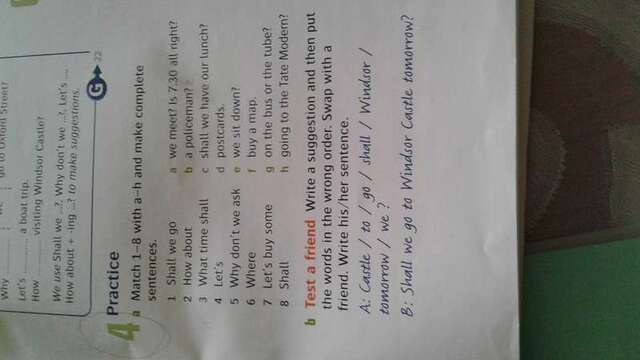 Why
Let's ............ a boat trip.
How ............ visiting Windsor Castle?
We use Shall we ...?, Why don't we ...?, Let's ...
How about + -ing ...? to make suggestions.
G 22
4 Practice
a Match 1–8 with a–h and make complete
sentences.
1 Shall we go a we meet? Is 7.30 all right?
2 How about b a policeman?
3 What time shall c shall we have our lunch?
4 Let's d postcards.
5 Why don't we ask e we sit down?
6 Where f buy a map.
7 Let's buy some g on the bus or the tube?
8 Shall h going to the Tate Modern?
b Test a friend Write a suggestion and then put
the words in the wrong order. Swap with a
friend. Write his/her sentence.
A: Castle / to / go / shall / Windsor /
tomorrow / we ?
B: Shall we go to Windsor Castle tomorrow?